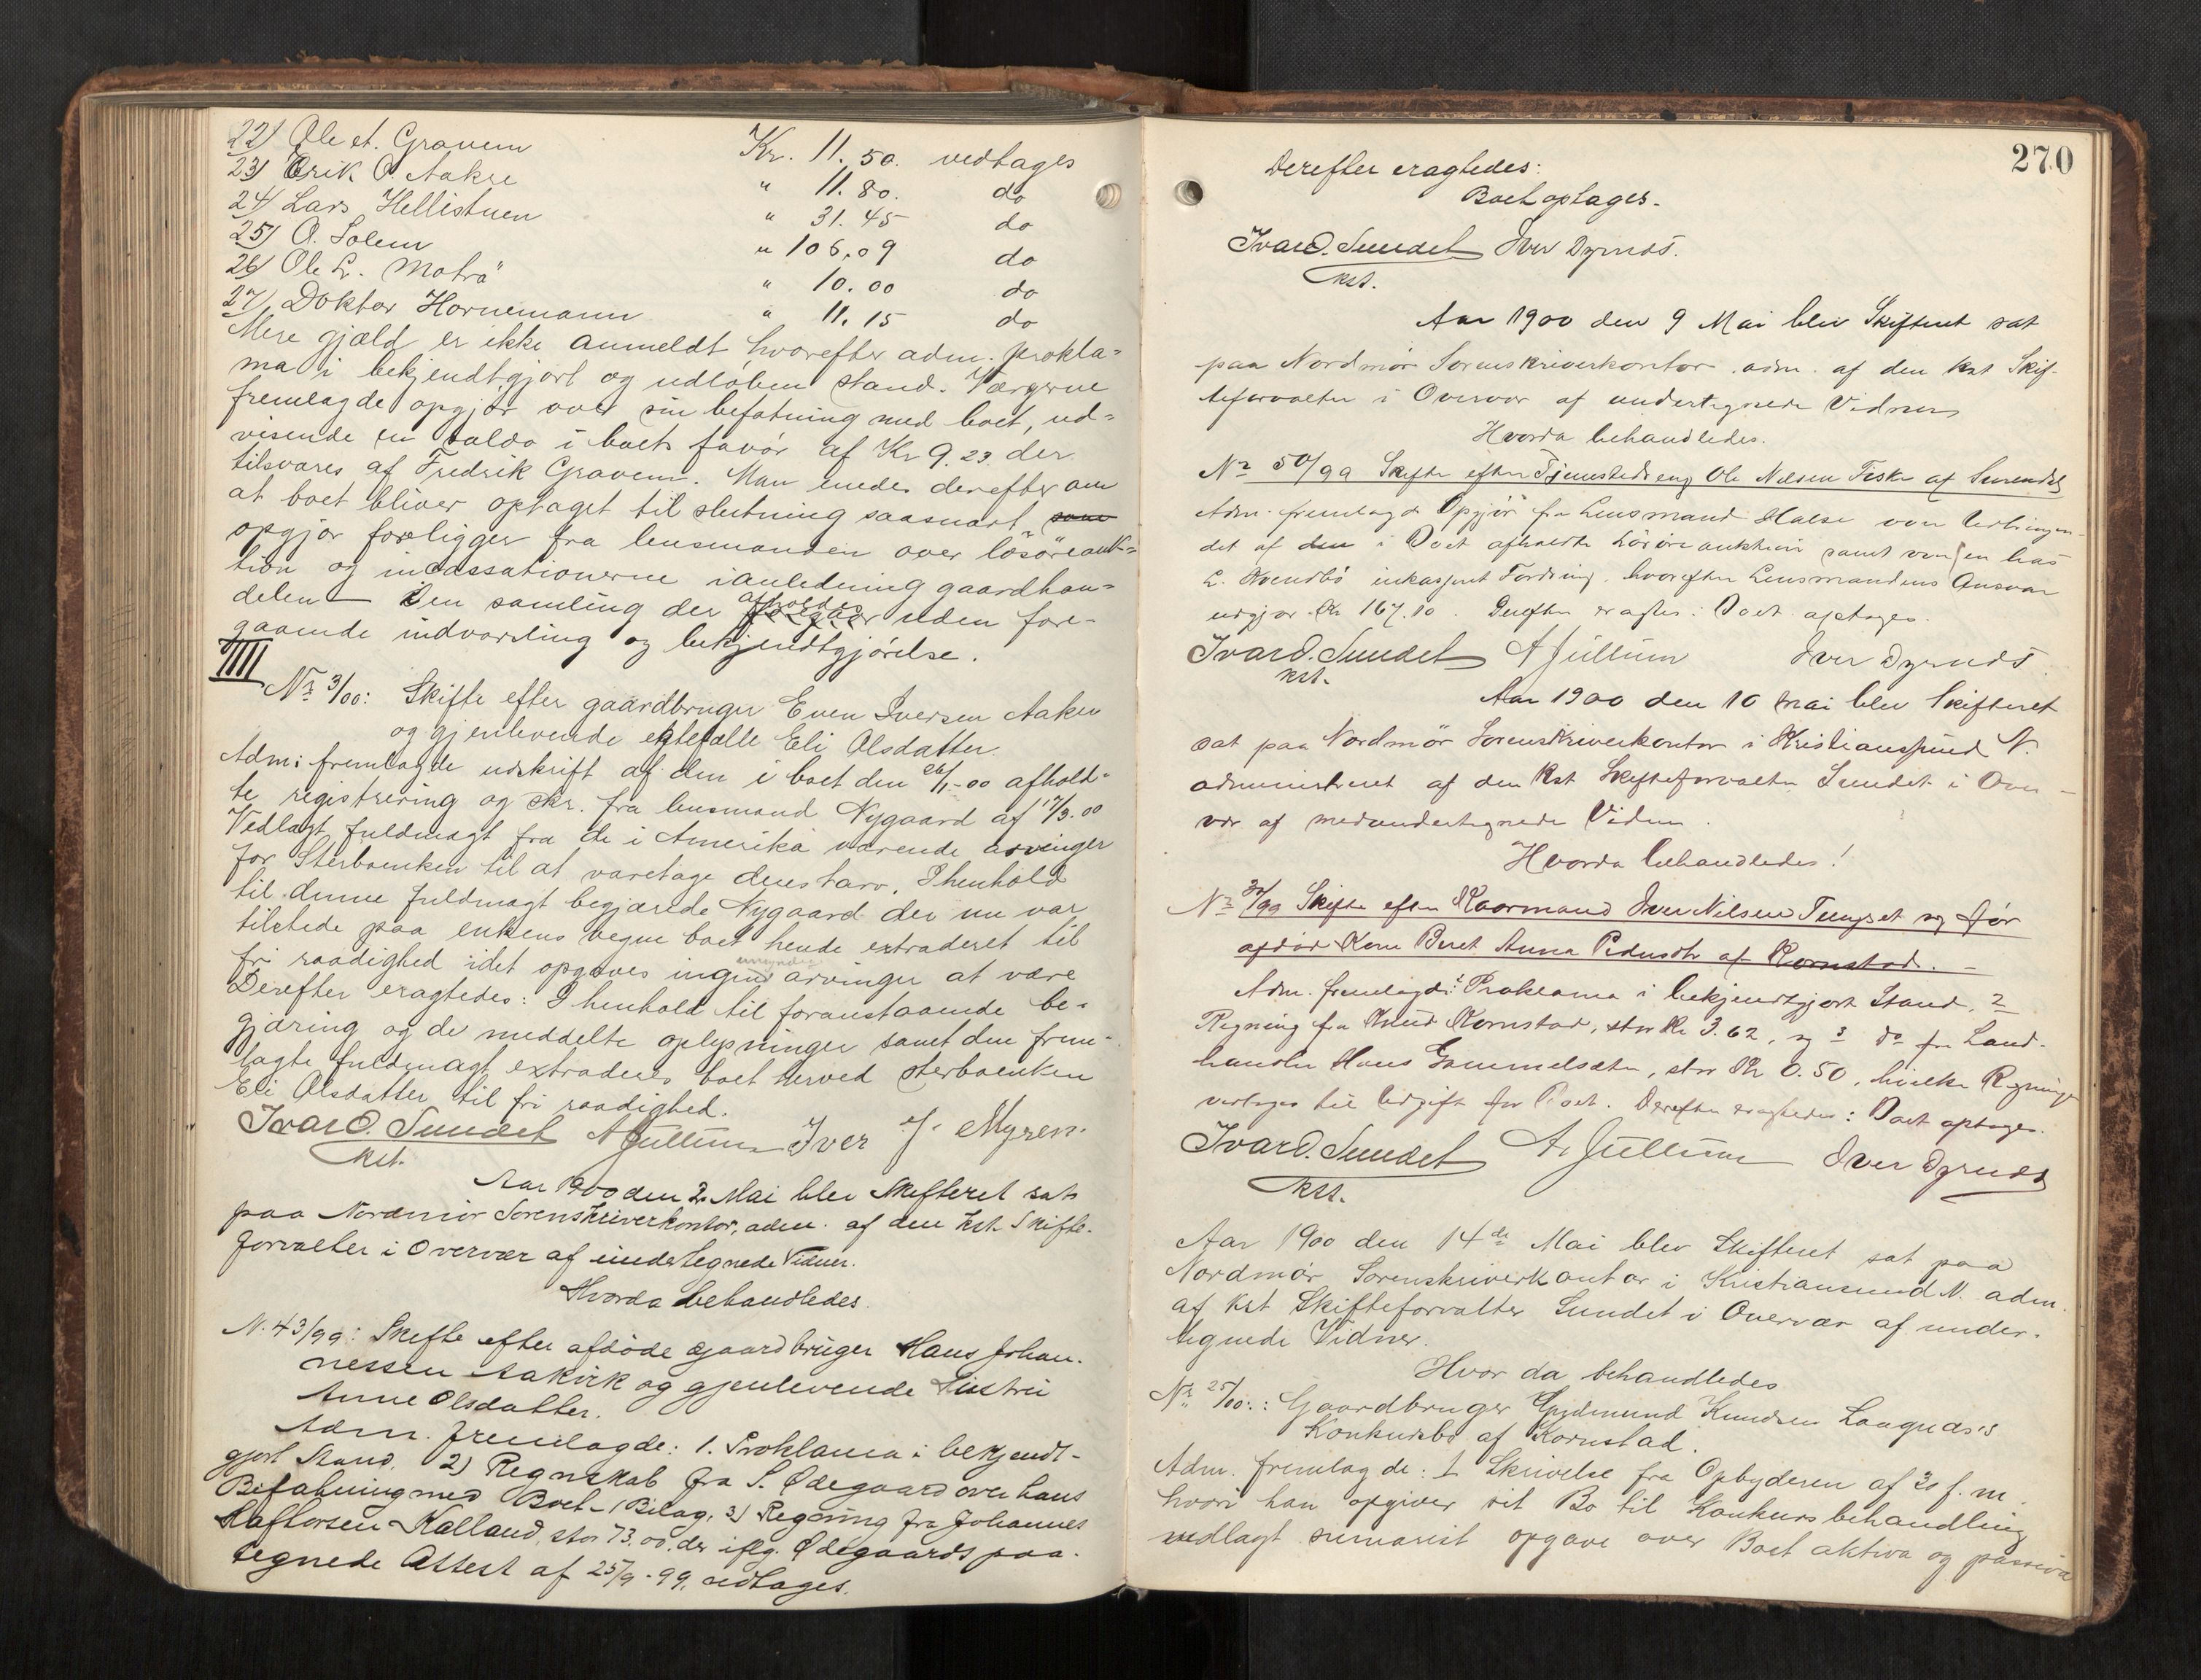 22) Ole et. Gravem Kr. 11.50. vedtages
23) Erik O. Aakre " 11.80. do
24) Lars Hellistuen " 31.45 do
25) O. Solem " 106,09 do
26) Ole L. Moträ " 10.00 do
27) Doktor Hornemann " 11.15 do
Mere gjæld er ikke anmeldt, hvorefter adm. prokla=
ma i bekjendtgjort og udløben stand. Værgerne
fremlagde opgjør over sin befatning med boet, ud=
visende en saldo i boets favør af Kr 9.23 der
tilsvares af Fredrik Gravem. Man enedes derefter om
at boet bliver optaget til slutning saasnart som
opgjør foreligger fra lensmanden over løsøreauk=
tion og incassationerne i anledning gaardhan=
delen – Den samling der afholdes foregaar uden fore-
gaaende indvarsling og bekjendtgjørelse.
IIII
No 3/00: Skifte efter gaardbruger Even Iversen Aaken
og gjenlevende egtefælle Eli Olsdatter
Adm: fremlagde udskrift af den i boet den 26/1-00 afhold=
te registrering og skr. fra lensmand Nygaard af 17/3.00
Vedlagt fuldmagt fra de i Amerika værende arvinger
for Sterboenken til at varetage deres tarv. I henhold
til denne fuldmagt begjærede Nygaard der nu var
tilstede paa enkens vegne boet hende extraderet til
fri raadighed idet opgaves ingen umyndige arvinger at være
Derefter eragtedes: I henhold til foranstaaende be=
gjæring og de meddelte oplysninger samt den frem=
lagte fuldmagt extraderes boet herved sterboenken
Eli Olsdatter til fri raadighed.
Ivar O. Sundet A Jullum Iver J. Myren.
kst.
Aar 1900 den 2. Mai blev Skifteret sat
paa Nordmør Sorenskriverkontor, adm. af den kst. Skifte-
forvalter i Overvær af undertegnede Vidner.
Hvorda behandledes.
N. 43/99: Skifte efter afdøde gaardbruger Hans Johan-
nessen Aakvik og gjenlevende Hustru
Anne Olsdatter.
Adm. fremlagde: 1. Proklama i bekjendt-
gjort Stand. 2) Regnskab fra S. Ødegaard over hans
Befatning med Boet – 1 Bilag. 3) Regning fra Johannes
Haftorsen Kalland, stor 73.00, der iflg. Ødegaards paa-
tegnede Attest af 25/9-99, vedtages.
270
Derefter eragtedes:
Boet optages.
Ivar O. Sundet Iver Dyrnds.
kst.
Aar 1900 den 9 Mai blev Skifteret sat
paa Nordmør Sorenskriverkontor adm. af den kst Skif-
teforvalter i Overvær af undertegnede Vidner
Hvorda behandledes.
No 50/99 Skifte efter Tjenestedreng Ole Nilsen Fiske af Surendal
Adm. fremlagde Opgjør fra Lensmand Halse over Udbringen-
det af den i Boet afholdte Løsøreauktion samt over en hos
L. Kvendbø inkasseret Fordring, hvorefter Lensmandens Ansvar
udgjør Kr 167.10. Derefter eragtes: Boet optages.
Ivar O. Sundet A Jullum Iver Dyrnds
kst.
Aar 1900 den 10 Mai blev Skifteret
sat paa Nordmør Sorenskriverkontor i Kristianssund N.
administreret af den kst Skifteforvalter Sundet i Over-
vær af medundertegnede Vidner.
Hvorda behandledes!
No 30/99 Skifte efter Kaarmand Iver Nilsen Tungset og før
afdød Kone Beret Anna Pedersdtr af Kornstad. –
Adm. fremlagde: 1 Proklama i bekjendtgjort Stand, 2
Regning fra Knud Kornstad, stor Kr 3.62, og 3 do fra Land-
handler Hans Gammelsæter, stor Kr 0.50, hvilke Regninger
vedtages til Udgift for Boet. Derefter eragtedes: Boet optages.
Ivar O. Sundet A. Jullum Iver Dyrnds
kst.
Aar 1900 den 14de Mai blev Skifteret sat paa
Nordmør Sorenskriverkontor i Kristiansund N. adm.
af kst Skifteforvalter Sundet i Overvær af under-
tegnede Vidner.
Hvor da behandledes
No 25/00: Gaardbruger Gudmund Knudsen Langnæs's
Konkursbo af Kornstad.
Adm. fremlagde: 1 Skrivelse fra Opbyderen af 30 f. m.
hvori han opgiver sit Bo til Konkursbehandling
vedlagt sumarist opgave over Boet aktiva og passiva